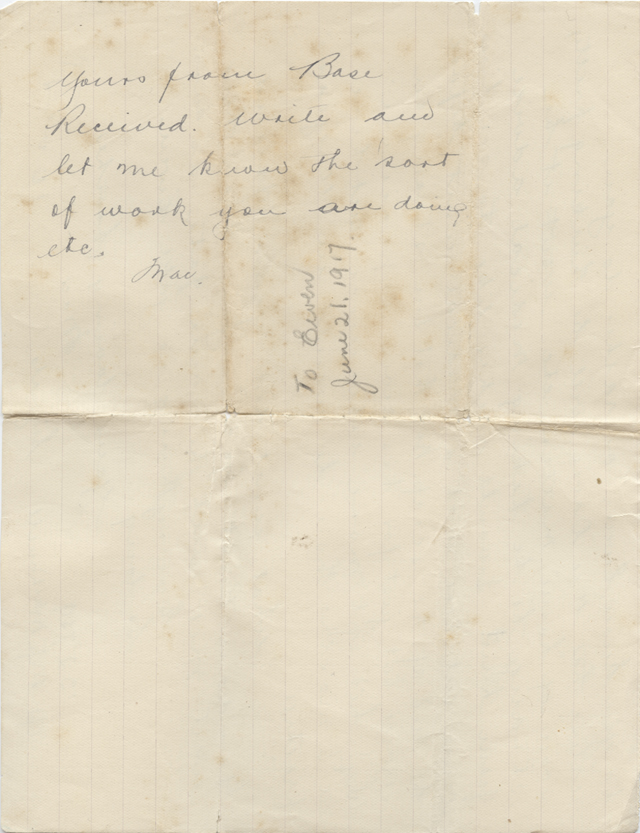 Yours from Base
Received. Write and
let me know the sort
of work you are doing
etc.
Mac.
To Ewen
June 21. 1917.